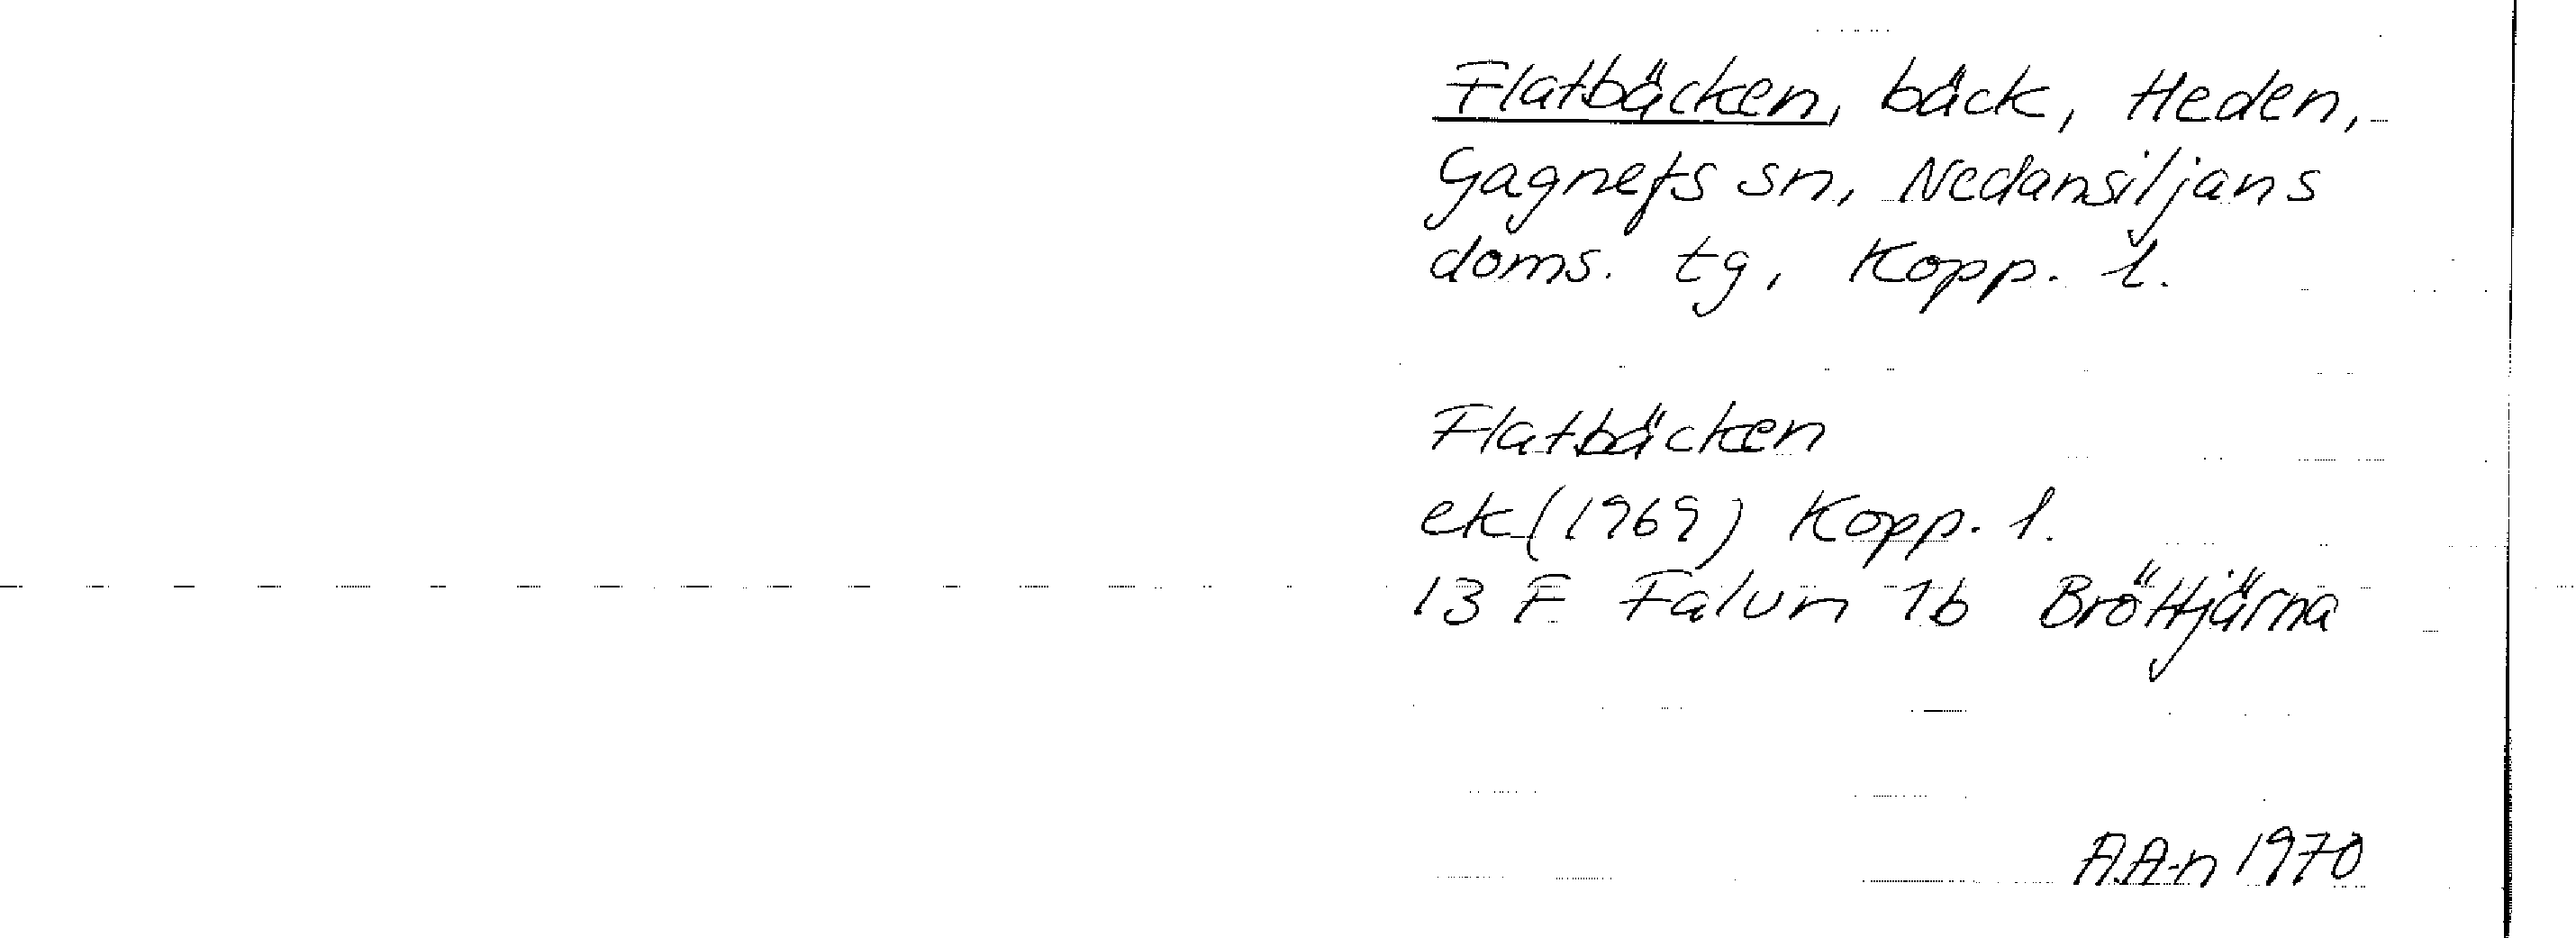 Flatbäcken, bäck, Heden,
Gagnefs sn, Nedansiljans
doms. tg, Kopp. l.
Flatbäcken
ek (1969) Kopp. l.
13 F Falun 1b Bröttjärna
A.A-n 1970